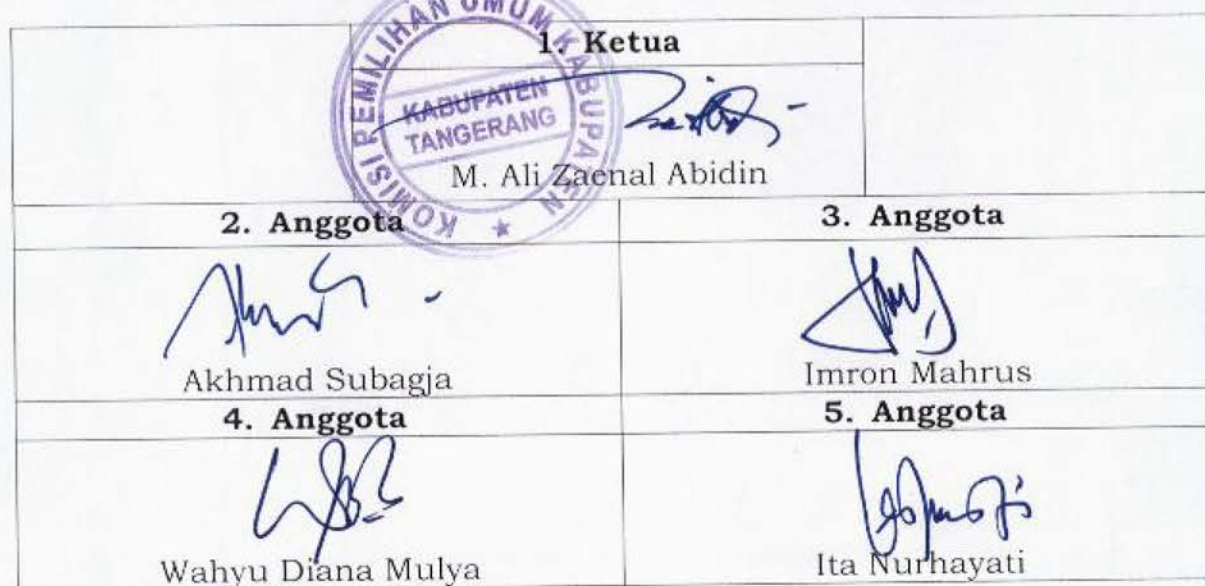 KOMISI PEMILIHAN UMUM KABUPATEN
KABUPATEN
TANGERANG
1. Ketua
M. Ali Zaenal Abidin
2. Anggota
3. Anggota
Akhmad Subagja
Imron Mahrus
4. Anggota
5. Anggota
Wahyu Diana Mulya
Ita Nurhayati